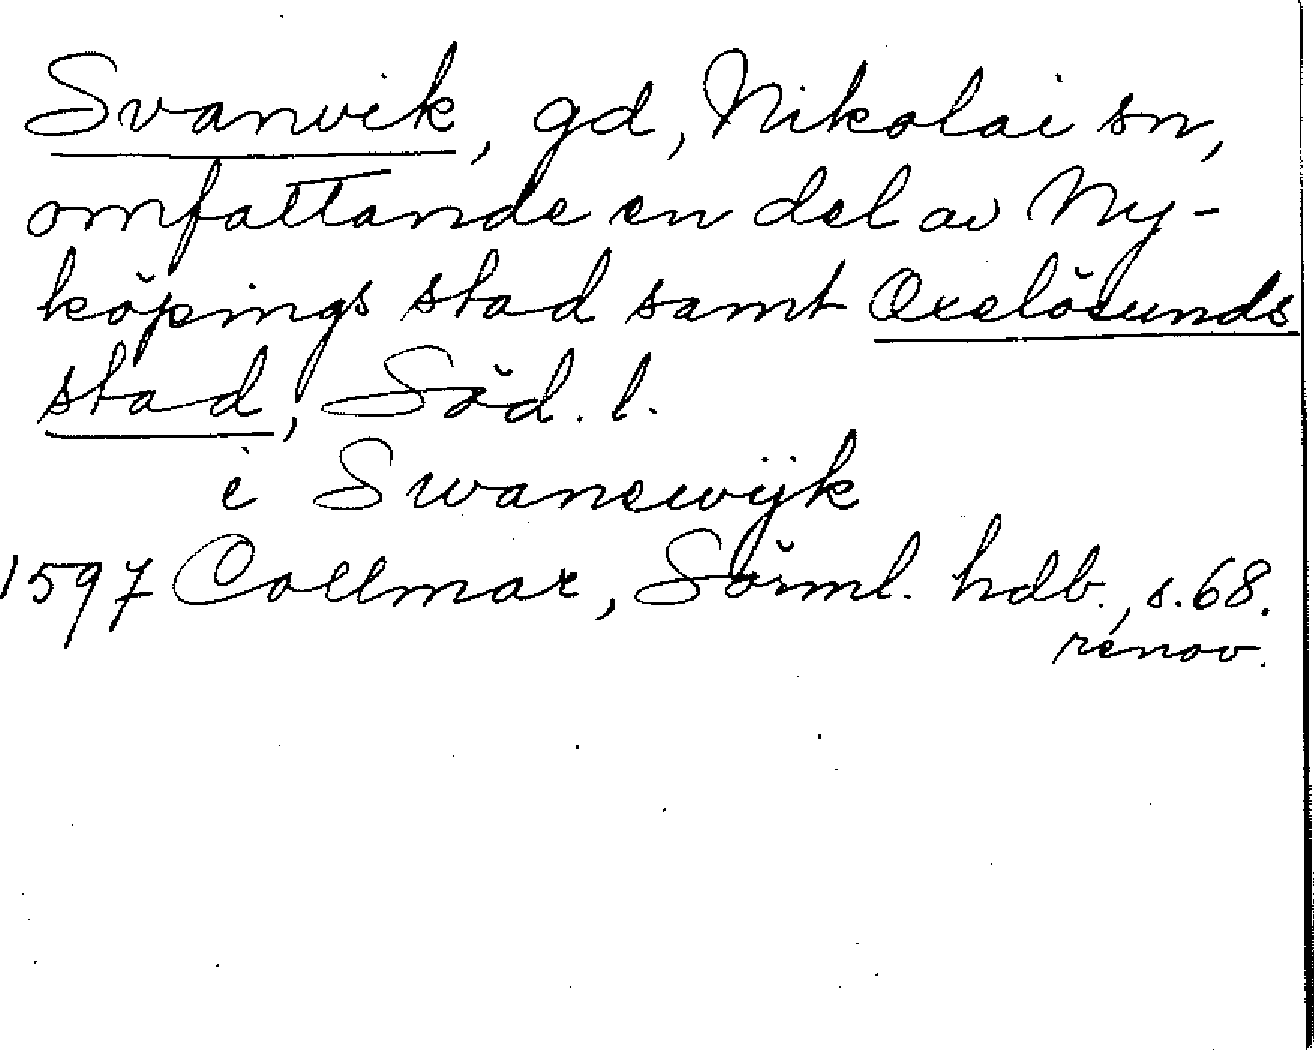 Svanvik, gd, Nikolai sn,
omfattande en del av Ny-
köpings stad samt Oxelösunds
stad, Söd. l.
i Swanewijk
1597 Collmar, Sörml. hdb., s. 68.
renov.